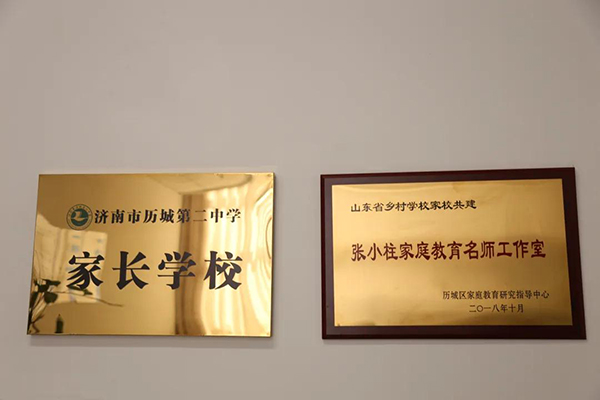 济南市历城第二中学
家长学校
山东省乡村学校家校共建
张小柱家庭教育名师工作室
历城区家庭教育研究指导中心
二〇一八年十月